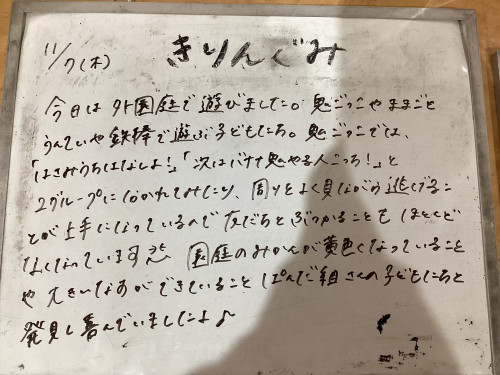 11/7(木) きりんぐみ
今日は外園庭で遊びました。鬼ごっこやままごと
うんていや鉄棒で遊ぶ子どもたち。鬼ごっこでは、
「はさみうちはなしよ!」「次はバナナ鬼やる人こっち!」と
2グループにわかれてみたり、周りをよく見ながら逃げるこ
とが上手になっているので友だちとぶつかることもほとんど
なくなっています 園庭のみかんが黄色くなっていること
や大きい 、ができていること ぱんだ組さんの子どもたちと
発見し喜んでいましたよ♪